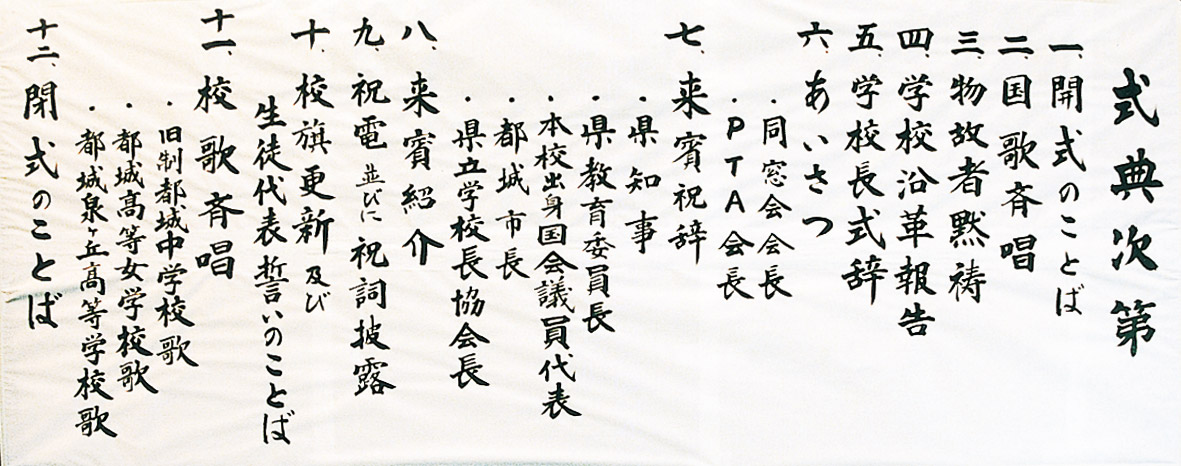 式典次第
一、開式のことば
二、国歌斉唱
三、物故者黙祷
四、学校沿革報告
五、学校長式辞
六、あいさつ
・同窓会会長
・PTA会長
七、来賓祝辞
・県知事
・県教育委員長
・本校出身国会議員代表
・都城市長
・県立学校長協会長
八、来賓紹介
九、祝電並びに祝詞披露
十、校旗更新及び
生徒代表誓いのことば
十一、校歌斉唱
・旧制都城中学校歌
・都城高等女学校歌
・都城泉ヶ丘高等学校歌
十二、閉式のことば